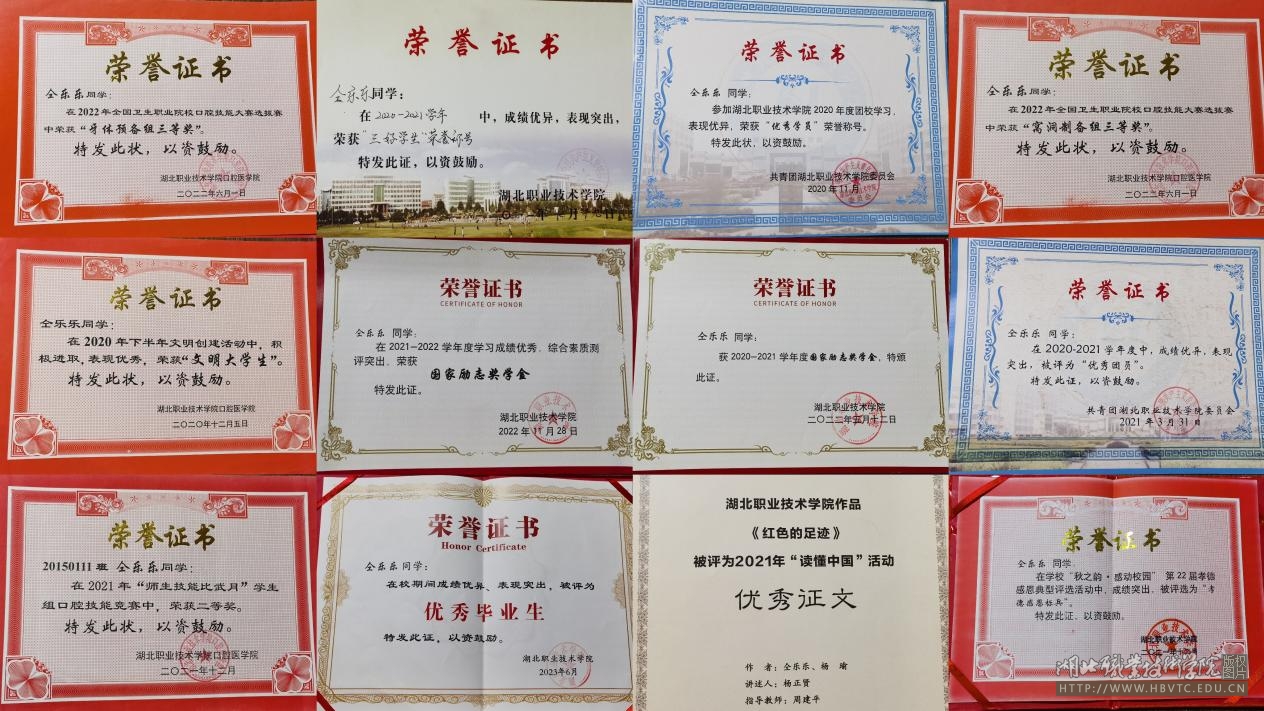 荣誉证书
仝乐乐同学：
在2022年全国卫生职业院校口腔技能大赛选拔赛
中荣获“牙体预备组三等奖”。
特发此状，以资鼓励。
湖北职业技术学院口腔医学院
二〇二二年六月一日
荣誉证书
仝乐乐同学：
在 2020-2021学年 中，成绩优异，表现突出，
荣获“三好学生”荣誉称号
特发此证，以资鼓励。
湖北职业技术学院
荣誉证书
仝乐乐 同学：
参加湖北职业技术学院 2020 年度团校学习，
表现优异，荣获“优秀学员”荣誉称号。
特发此状，以资鼓励。
共青团湖北职业技术学院委员会
2020 年 11 月
荣誉证书
仝乐乐同学：
在2022年全国卫生职业院校口腔技能大赛选拔赛
中荣获“窝洞制备组三等奖”。
特发此状，以资鼓励。
湖北职业技术学院口腔医学院
二〇二二年六月一日
荣誉证书
仝乐乐同学：
在 2020 年下半年文明创建活动中，积
极进取，表现优秀，荣获“文明大学生”。
特发此状，以资鼓励。
湖北职业技术学院口腔医学院
二〇二〇年十二月五日
荣誉证书
CERTIFICATE OF HONOR
仝乐乐 同学：
在 2021—2022 学年度学习成绩优秀，综合素质测
评突出，荣获
国家励志奖学金
特发此证。
湖北职业技术学院
2022 年 11 月 28 日
荣誉证书
CERTIFICATE OF HONOR
仝乐乐 同学：
获 2020—2021 学年度国家励志奖学金，特颁
此证。
湖北职业技术学院
二〇二二年五月十二日
荣誉证书
仝乐乐 同学：
在 2020-2021 学年度中，成绩优异，表现
突出，被评为“优秀团员”。
特发此证，以资鼓励。
共青团湖北职业技术学院委员会
2021 年 3 月 31 日
荣誉证书
20150111 班 仝乐乐同学：
在 2021 年“师生技能比武月”学生
组口腔技能竞赛中，荣获二等奖。
特发此状，以资鼓励。
湖北职业技术学院口腔医学院
二〇二一年十二月
荣誉证书
Honor Certificate
仝乐乐 同学：
在校期间成绩优异、表现突出，被评为
优秀毕业生
特发此证，以资鼓励。
湖北职业技术学院
2023年6月
湖北职业技术学院作品
《红色的足迹》
被评为2021年“读懂中国”活动
优秀征文
作 者：仝乐乐、杨 瑜
讲述人：杨正贤
指导教师：周建平
荣誉证书
仝乐乐 同学：
在学校“秋之韵·感动校园” 第 22 届孝德
感恩典型评选活动中，成绩突出，被评选为“孝
德感恩标兵”。
特发此证，以资鼓励。
湖北职业技术学院
湖北职业技术学院 版权图片
HTTP://WWW.HBVTC.EDU.CN